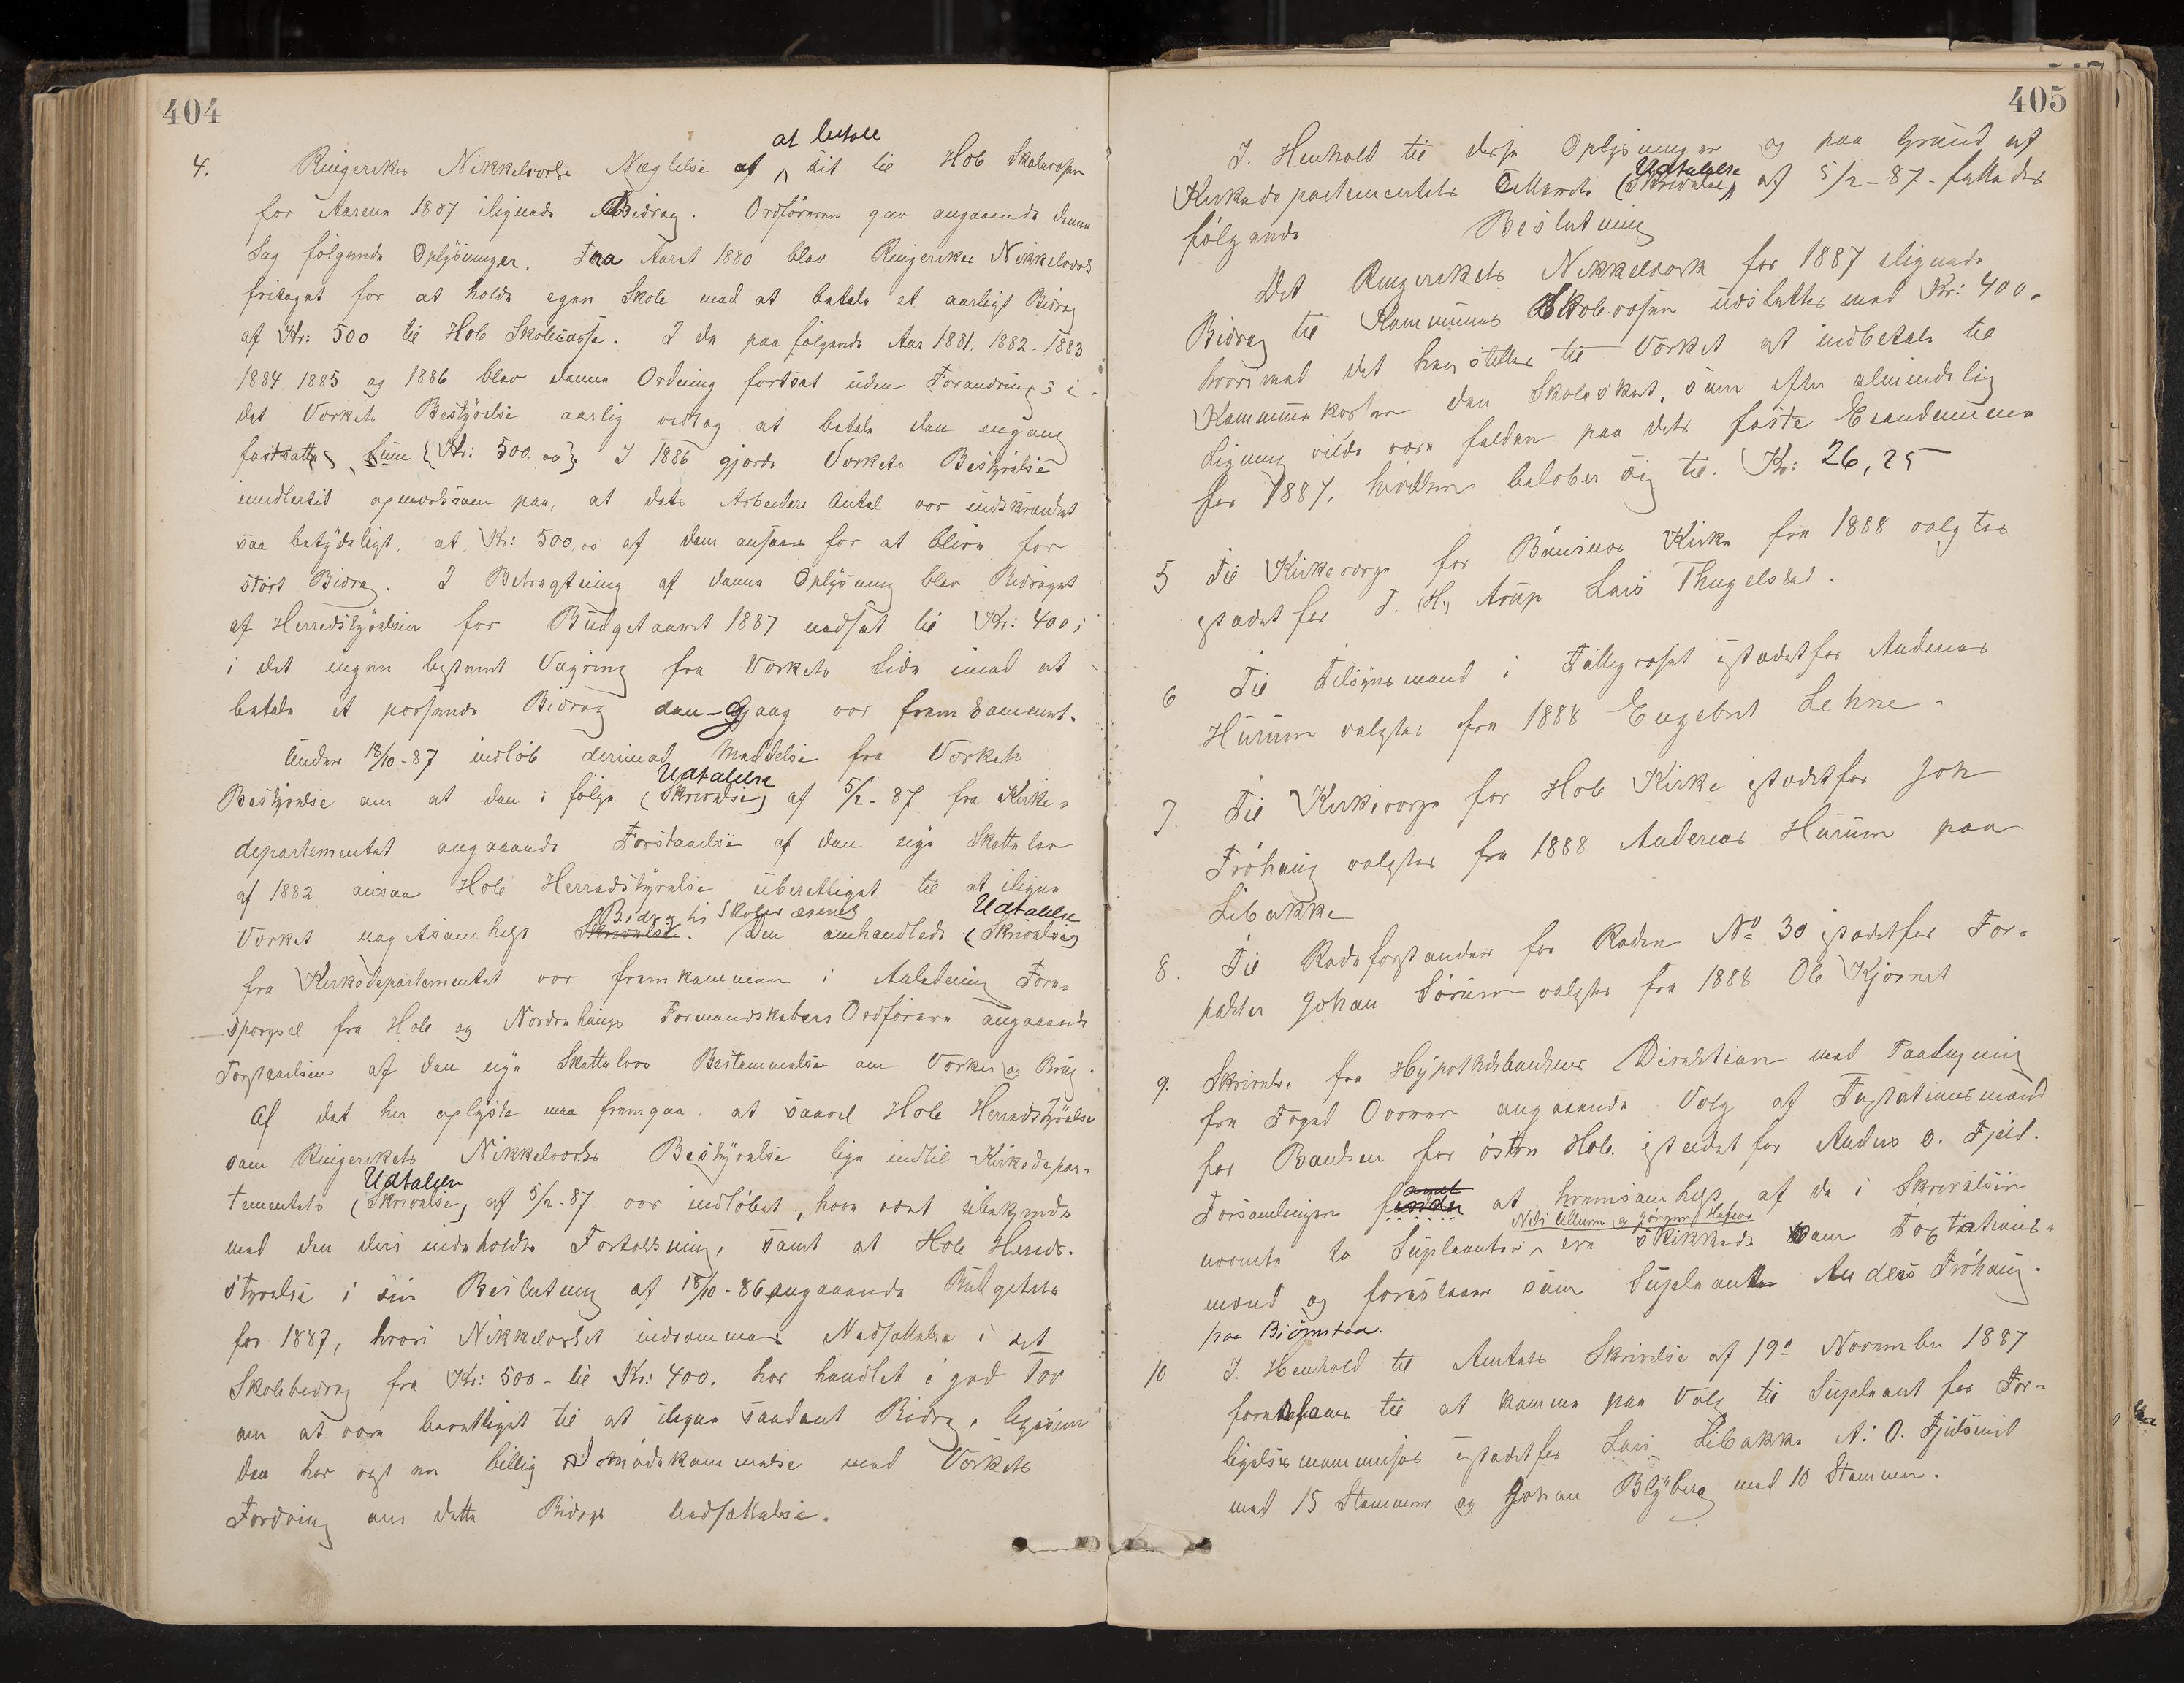 404
at betale
4. Ringerikes Nikkelverks Nægtelse af sit til Hole Skolevæsen
for Aarene 1887 ilignede Bidrag. Ordføreren gav angaaende denne
Sag følgende Oplysninger. Fra Aaret 1880 blev Ringerikes Nikkelværk
fritaget for at holde egen Skole mod at betale et aarligt Bidrag
af Kr: 500 til Hole Skolecasse. I de paa følgende Aar 1881. 1882. 1883
1884 1885 og 1886 blev denne Ordning fortsat uden Forandring; i
det Værkets Bestyrelse aarlig vedtog at betale den engang
fastsatte Sum {Kr: 500.00}. I 1886 gjorde Værkets Bestyrelse
imidlertid opmærksom paa, at dets Arbeideres Antal var indskrænket
saa betydeligt, at Kr: 500.00 af dem ansaaes for at blive for
stort Bidrag. I Betragtning af denne Oplysning blev Bidraget
af Herredstyrelsen for Budgetaaret 1887 nedsat til Kr: 400;
i det ingen bestemt Vægring fra Værkets Side imod at
betale et passende Bidrag den Gang var fremkommet.
Under 18/10-87 indløb derimod Meddelse fra Værkets
Udtalelse
Bestyrelse om at den i følge (Skrivelse) af 5/2-87 fra Kirke=
departementet angaaende Forstaaelse af den nye Skattelov
af 1882 ansaa Hole Herredstyrelse uberettiget til at iligne
Bidrag til Skolevæsenet Udtalelse
Værket nogetsomhelst Skrivelse. Den omhandlede (Skrivelse)
fra Kirkedepartementet var fremkommen i Anledning Fore=
spørgsel fra Hole og Norderhougs Formandskabers Ordførere angaaende
Forstaaelsen af den nye Skattelovs Bestemmelse om Værker og Brug.
Af det her oplyste maa fremgaa, at saavel Hole Herredstyrelse
som Ringerikets Nikkelværks Bestyrelse lige indtil Kirkedepar=
Udtalelse
tementets (Skrivelse) af 5/2-87 var indløbet, have vært ubekjendte
med den deri indeholdte Fortolkning, samt at Hole Herreds=
styrelse i sin Beslutning af 18/10-86 angaaende Budgettet
for 1887, hvori Nikkelværket indrømmes Nedsættelse i det
Skolebidrag fra Kr: 500 - til Kr: 400. har handlet i god Tro
om at være berettiget til at iligne saadant Bidrag, ligesom
den har vist en billig Imødekommelse mod Værkets
Fordring om dette Bidrags Nedsættelse.
405
I. Henhold til disse Oplysninger og paa Grund af
Udtalelse
Kirkedepartementets (Skrivelse) af 5/2-87 - fattedes
følgende Beslutning
Det Ringerikets Nikkelværk for 1887 ilignede
Bidrag til Kommunens Skolevæsen udslettes med Kr: 400.
hvorimod det henstilles til Værket at indbetale til
Kommunekassen den Skoleskat, som efter almindelig
Ligning vilde være falden paa dets faste Eiendomme
for 1887, hvilken beløber sig til. Kr: 26,25
5 Til Kirkeværge for Bønsnes Kirke fra 1888 valgtes
istedet for T. (H.) Arup Lars Thingelstad.
6 Til Tilsynsmand i Fattigvæsnet istedetfor Andreas
Hurum valgtes fra 1888 Engebret Lehne.
7. Til Kirkeværge for Hole Kirke istedetfor Joh
Frøhaug valgtes fra 1888 Andreas Hurum paa
Libakke
8. Til Rodeforstander for Roden No 30 istedetfor For=
pakter Johan Sørum valgtes fra 1888 Ole Kjørnet
9. Skrivelse fra Hypothekbankens Direktion med Paategning
fra Foged angaaende Valg af Taxationsmand
for Banken for østre Hole istedet for Anders O. Fjeld.
Forsamlingen finder at hvemsomhelst af de i Skrivelsen
Nils Ullern og Jørgen Hafnor
nævnte to Suplianter ere skikkede som Taxtations=
mand og foreslaar som Supleanter Anders Frøhaug.
paa Bjørnstad.
10 I. Henhold til Amtets Skrivelse af 19de November 1887
foresloges til at komme paa Valg til Supleant for For=
ligelseskommisær istedetfor Lars Libakke A. O. Fjulsrud
med 15 Stemmer og Johan Blyberg med 10 Stemmer.